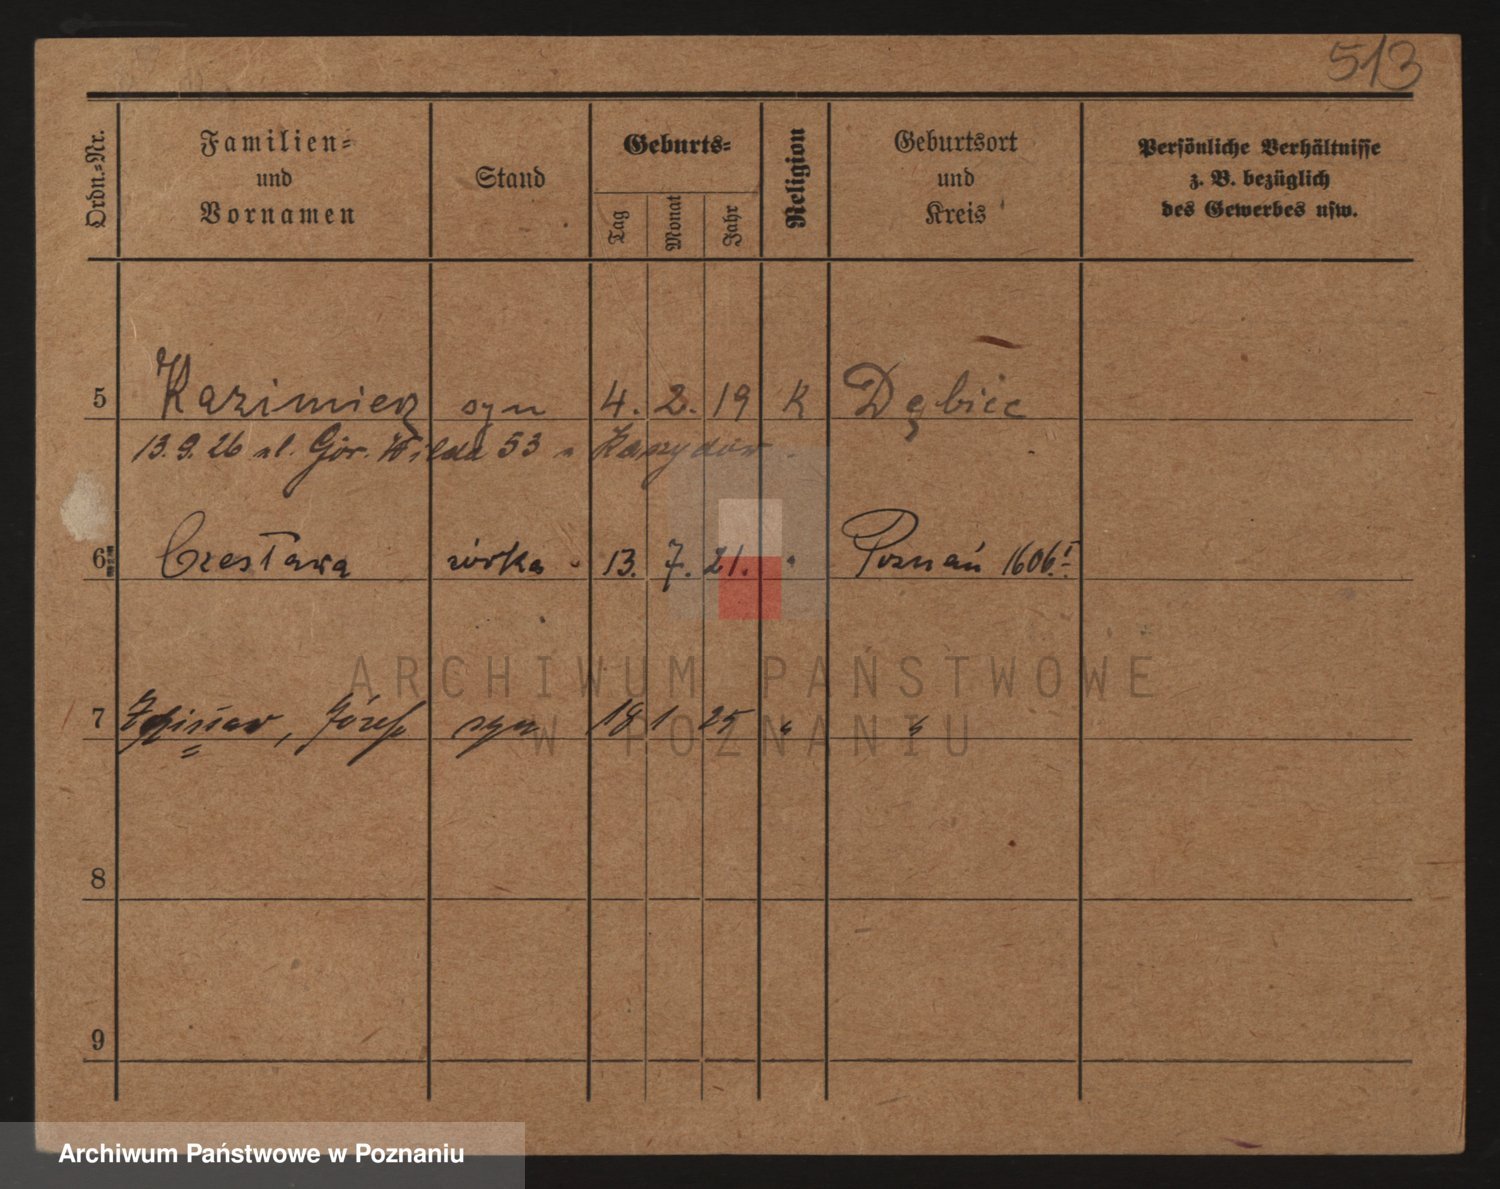 513
Ordn.-Nr.
Familien-
und
Vornamen
Stand
Geburts-
Tag
Monat
Jahr
Religion
Geburtsort
und
Kreis
Persönliche Verhältnisse
z. B. bezüglich
des Gewerbes usw.
5 Kazimierz syn 4. 2. 19 K Dębiec
13.9.26 ul. Gór. Wilda 53
6 Czesława córka 13. 7. 21. " Poznań 1606.I
7 Józef syn 18 1 25 " "
8
9
ARCHIWUM PAŃSTWOWE
W POZNANIU
Archiwum Państwowe w Poznaniu